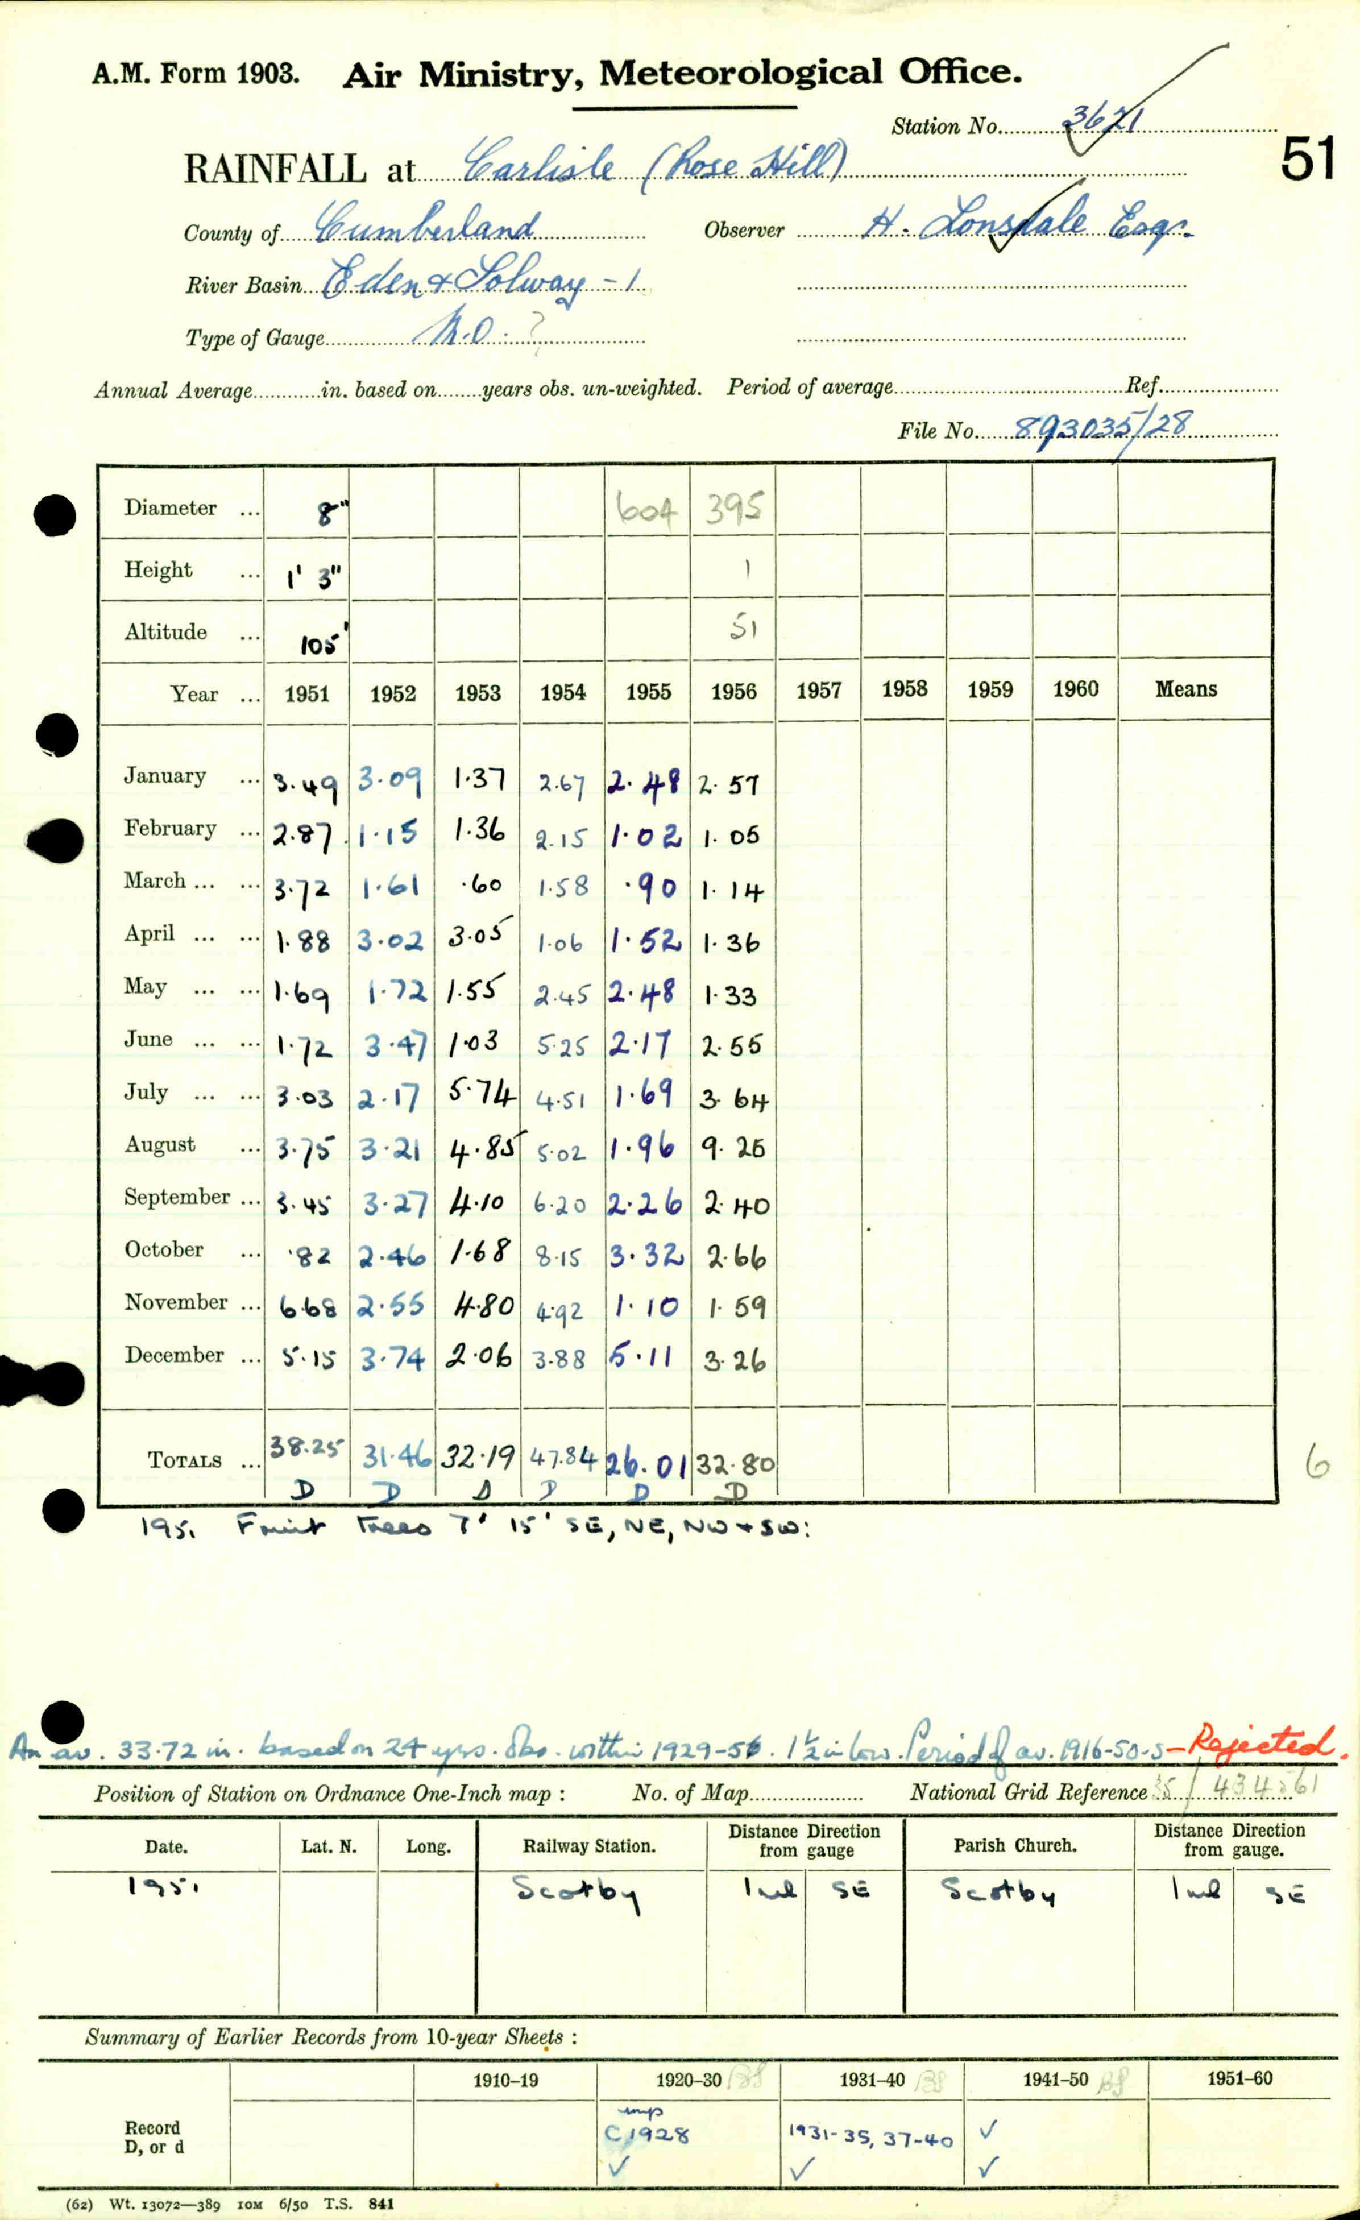 A.M. Form 1903. Air Ministry, Meteorological Office.
Station No. 3621
51
RAINFALL at Carlisle (Rose Hill)
County of Cumberland Observer H. Lonsdale Esqr.
River Basin Eden & Solway - 1
Type of Gauge M.O. ?
Annual Average in. based on years obs. un-weighted. Period of average Ref.
File No. 893035/28
Diameter ... 8" 604 395
Height ... 1' 3" 1
Altitude ... 105' 51
Year ... 1951 1952 1953 1954 1955 1956 1957 1958 1959 1960 Means
January ... 3.49 3.09 1.37 2.67 2.48 2.57
February ... 2.87 1.15 1.36 2.15 1.02 1.05
March ... ... 3.72 1.61 .60 1.58 .90 1.14
April ... ... 1.88 3.02 3.05 1.06 1.52 1.36
May ... ... 1.69 1.72 1.55 2.45 2.48 1.33
June ... ... 1.72 3.47 1.03 5.25 2.17 2.55
July ... ... 3.03 2.17 5.74 4.51 1.69 3.64
August ... 3.75 3.21 4.85 5.02 1.96 9.25
September ... 3.45 3.27 4.10 6.20 2.26 2.40
October ... .82 2.46 1.68 8.15 3.32 2.66
November ... 6.68 2.55 4.80 4.92 1.10 1.59
December ... 5.15 3.74 2.06 3.88 5.11 3.26
TOTALS ... 38.25 31.46 32.19 47.84 26.01 32.80
6
D D D D D D
1951 Fruit Trees 7' 15' SE, NE, NW + SW:
An av. 33.72 in. based on 24 yrs. obs. within 1929-56. 1½ in low. Period of av. 1916-50-s - Rejected.
Position of Station on Ordnance One-Inch map : No. of Map National Grid Reference 35/434561
Date. Lat. N. Long. Railway Station. Distance Direction from gauge Parish Church. Distance Direction from gauge.
1951 Scotby 1 ml SE Scotby 1 ml SE
Summary of Earlier Records from 10-year Sheets :
1910–19 1920–30 1931–40 1941–50 1951–60
Record D, or d
imp
C 1928 1931-35, 37-40 ✓
✓ ✓ ✓
(62) Wt. 13072—389 10M 6/50 T.S. 841